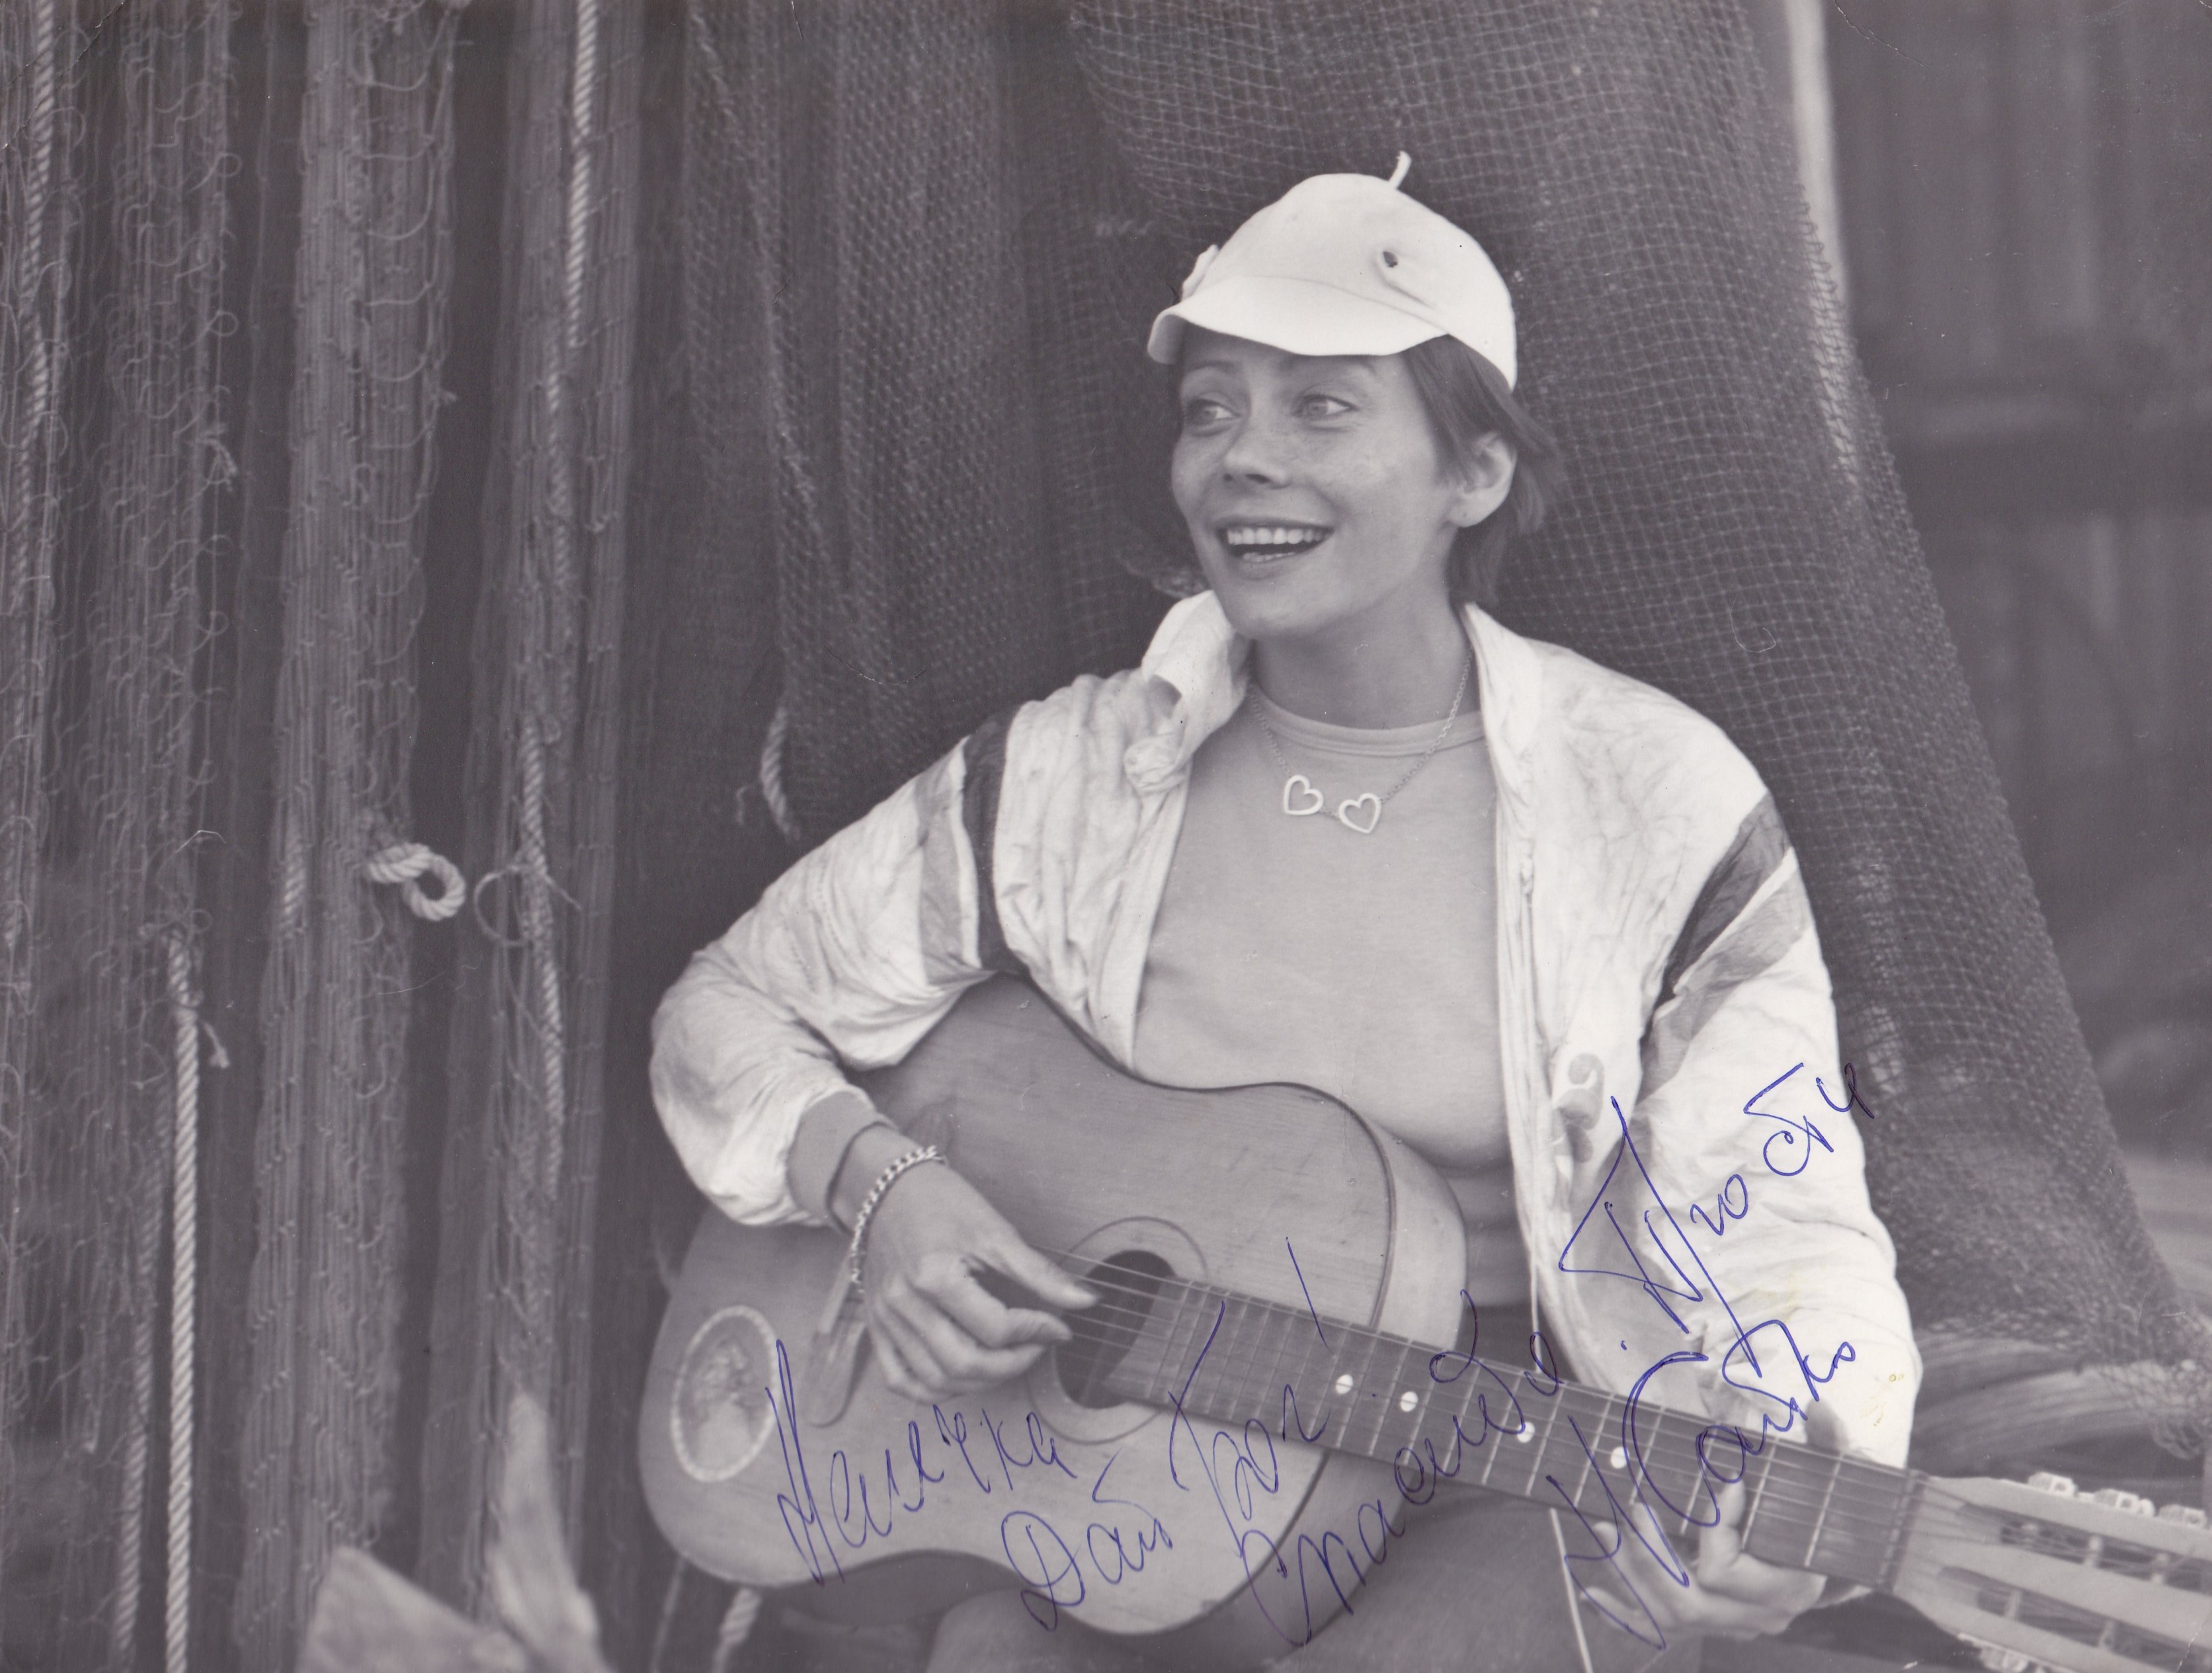 Нелечка
Дай Бог!
Спасибо. Прости
Н Сайко